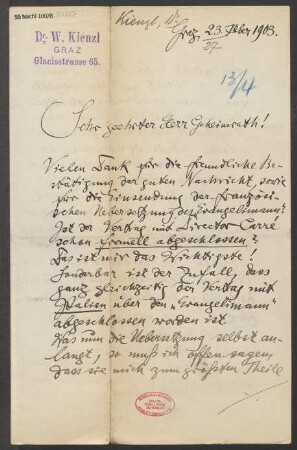 55 Nachl 100/B
Kienzl, W.
Dr. W. Kienzl
GRAZ
Glacisstrasse 65.
Graz, 23. Feber 1903.
27
13/4
Sehr geehrter Herr Geheimrath!
Vielen Dank für die freundliche Be-
stätigung der guten Nachricht, sowie
für die Einsendung der französi-
schen Uebersetzung des "Evangelimann".
Ist der Vertrag mit Director Carré
schon formell abgeschlossen?
Das ist mir das Wichtigste!
Sonderbar ist der Zufall, dass
ganz gleichzeitig der Vertrag mit
Italien über den "Evangelimann"
abgeschlossen worden ist
Was nun die Uebersetzung selbst an-
langt, so muß ich offen sagen,
dass sie mich zum größten Theile